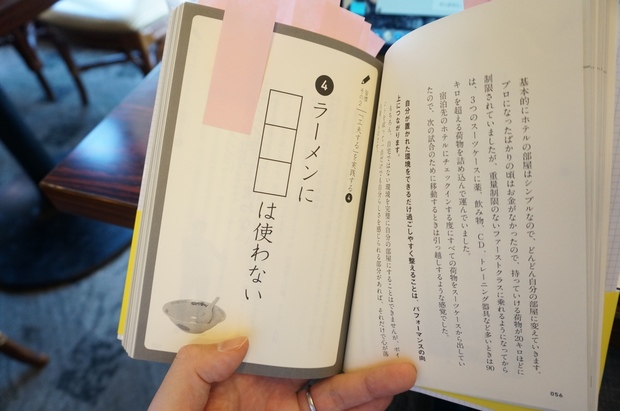 基本的にホテルの部屋はシンプルなので、どんどん自分の部屋に変えていきます。
プロになったばかりの頃はお金がなかったので、持っていける荷物が20キロほどに
制限されていましたが、重量制限のないファーストクラスに乗れるようになってから
は、3つのスーツケースに薬、飲み物、CD、トレーニング器具など多いときは90
キロを超える荷物を詰め込んで運んでいました。
宿泊先のホテルにチェックインする度にすべての荷物をスーツケースから出してい
たので、次の試合のために移動するときは引っ越しするような感覚でした。
自分が置かれた環境をできるだけ過ごしやすく整えることは、パフォーマンスの向
上につながります。
056
「工夫する」を実践する④
④ ラーメンに
□□□
は使わない